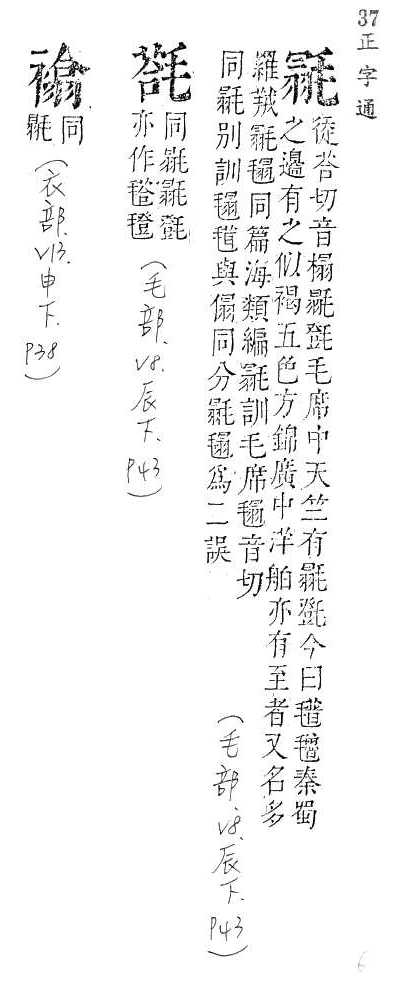 37正字通
毾 徒荅切音榻毾㲪毛席中天竺有毾㲪今曰氆氌秦蜀
之邊有之似褐五色方錦廣中洋舶亦有至者又名多
羅羢毾同篇海類編毾訓毛席音切
同毾別訓與傝同分毾為二誤
(毛部.V8.辰下.P43)
同毾㲪
亦作
(毛部.V8.辰下.P43)
同
毾
(衣部.V13.申下.P38)
6